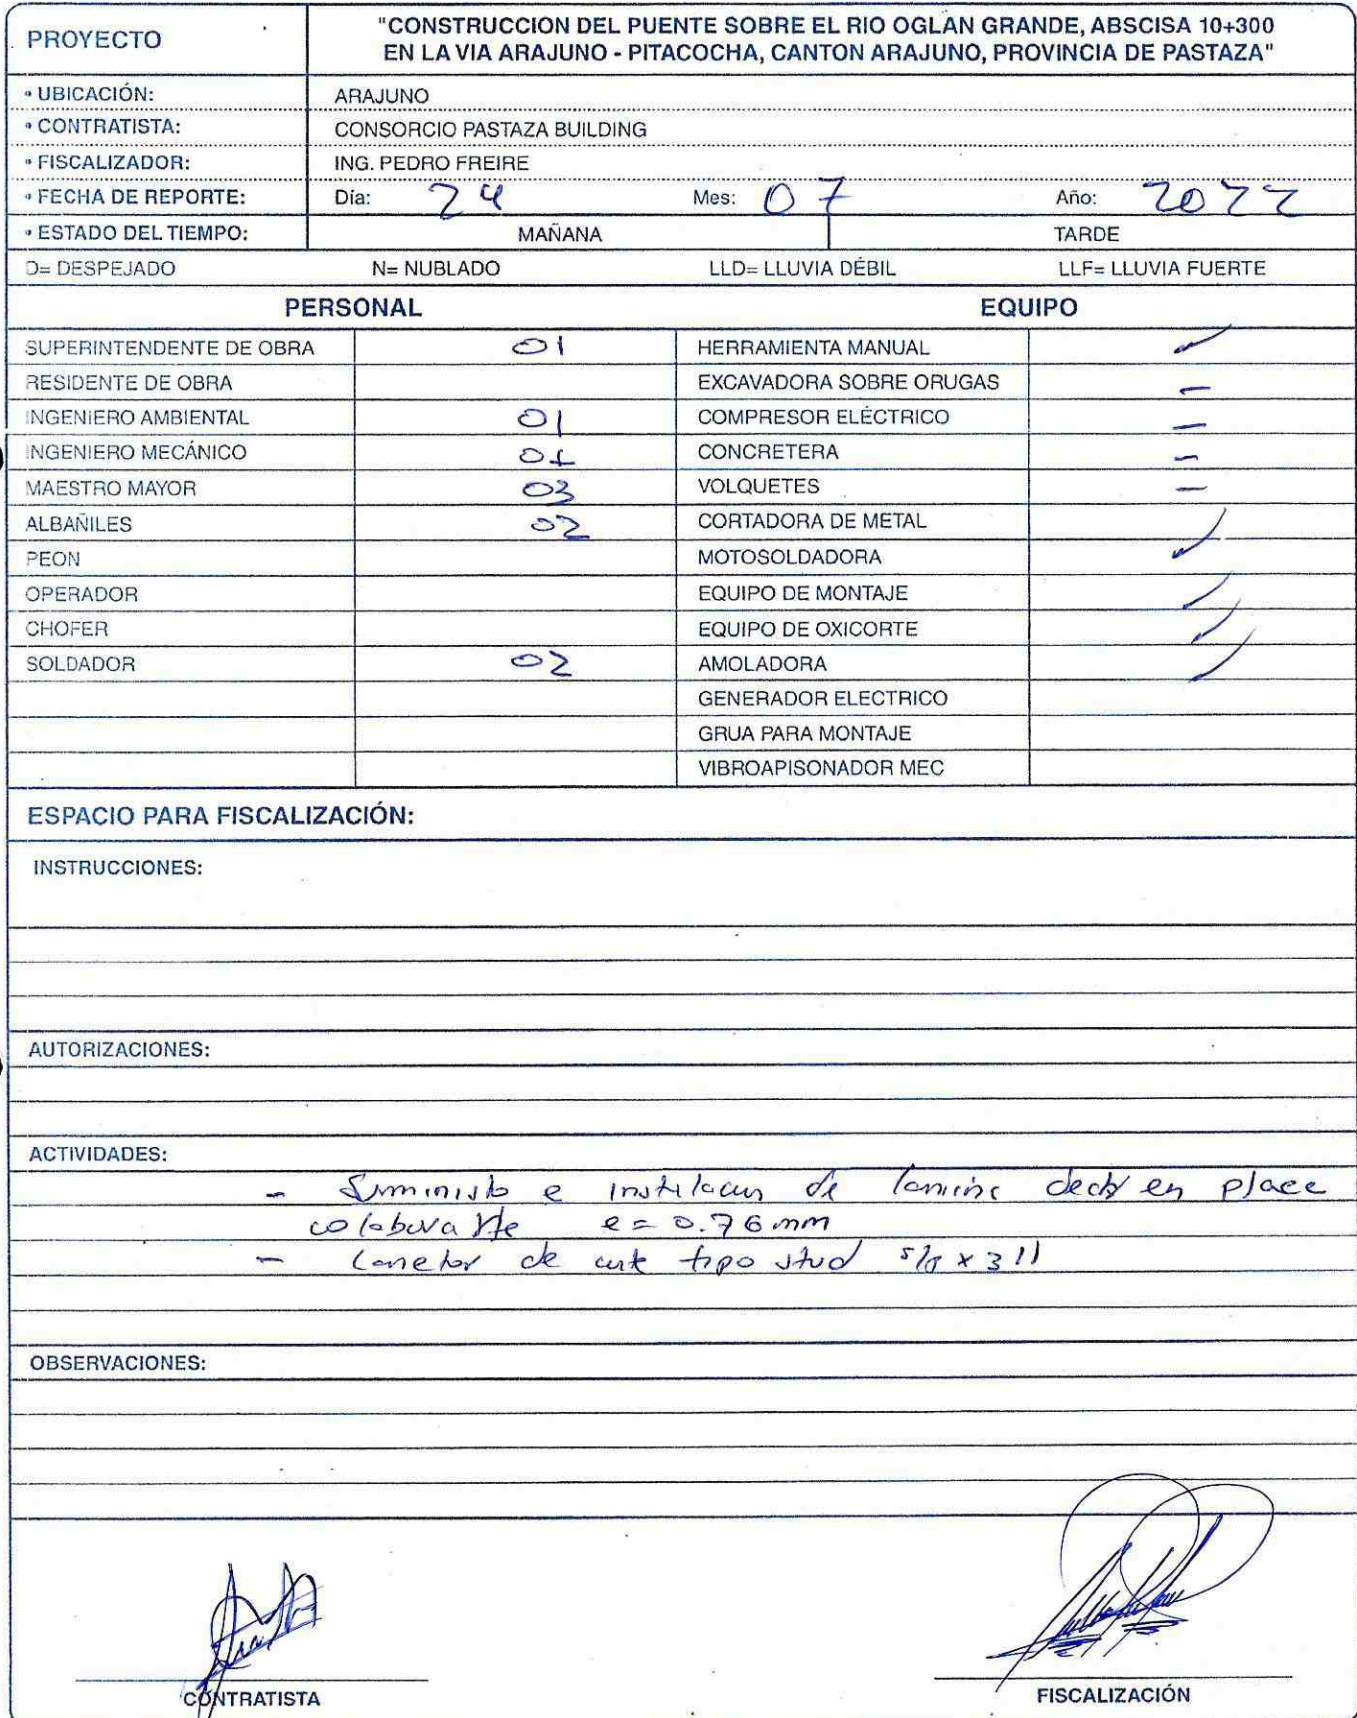 PROYECTO
"CONSTRUCCION DEL PUENTE SOBRE EL RIO OGLAN GRANDE, ABSCISA 10+300
EN LA VIA ARAJUNO - PITACOCHA, CANTON ARAJUNO, PROVINCIA DE PASTAZA"
• UBICACIÓN: ARAJUNO
• CONTRATISTA: CONSORCIO PASTAZA BUILDING
• FISCALIZADOR: ING. PEDRO FREIRE
• FECHA DE REPORTE: Día: 24 Mes: 07 Año: 2022
• ESTADO DEL TIEMPO: MAÑANA TARDE
D= DESPEJADO N= NUBLADO LLD= LLUVIA DÉBIL LLF= LLUVIA FUERTE
PERSONAL EQUIPO
SUPERINTENDENTE DE OBRA 01 HERRAMIENTA MANUAL ✓
RESIDENTE DE OBRA EXCAVADORA SOBRE ORUGAS –
INGENIERO AMBIENTAL 01 COMPRESOR ELÉCTRICO –
INGENIERO MECÁNICO 01 CONCRETERA –
MAESTRO MAYOR 03 VOLQUETES –
ALBAÑILES 02 CORTADORA DE METAL
PEON MOTOSOLDADORA ✓
OPERADOR EQUIPO DE MONTAJE ✓
CHOFER EQUIPO DE OXICORTE ✓
SOLDADOR 02 AMOLADORA ✓
GENERADOR ELECTRICO
GRUA PARA MONTAJE
VIBROAPISONADOR MEC
ESPACIO PARA FISCALIZACIÓN:
INSTRUCCIONES:
AUTORIZACIONES:
ACTIVIDADES:
- Suministo e instalacion de lamina deck en placa
colaborante e = 0.76 mm
- Conector de corte tipo stud 5/8 x 3"
OBSERVACIONES:
CONTRATISTA FISCALIZACIÓN